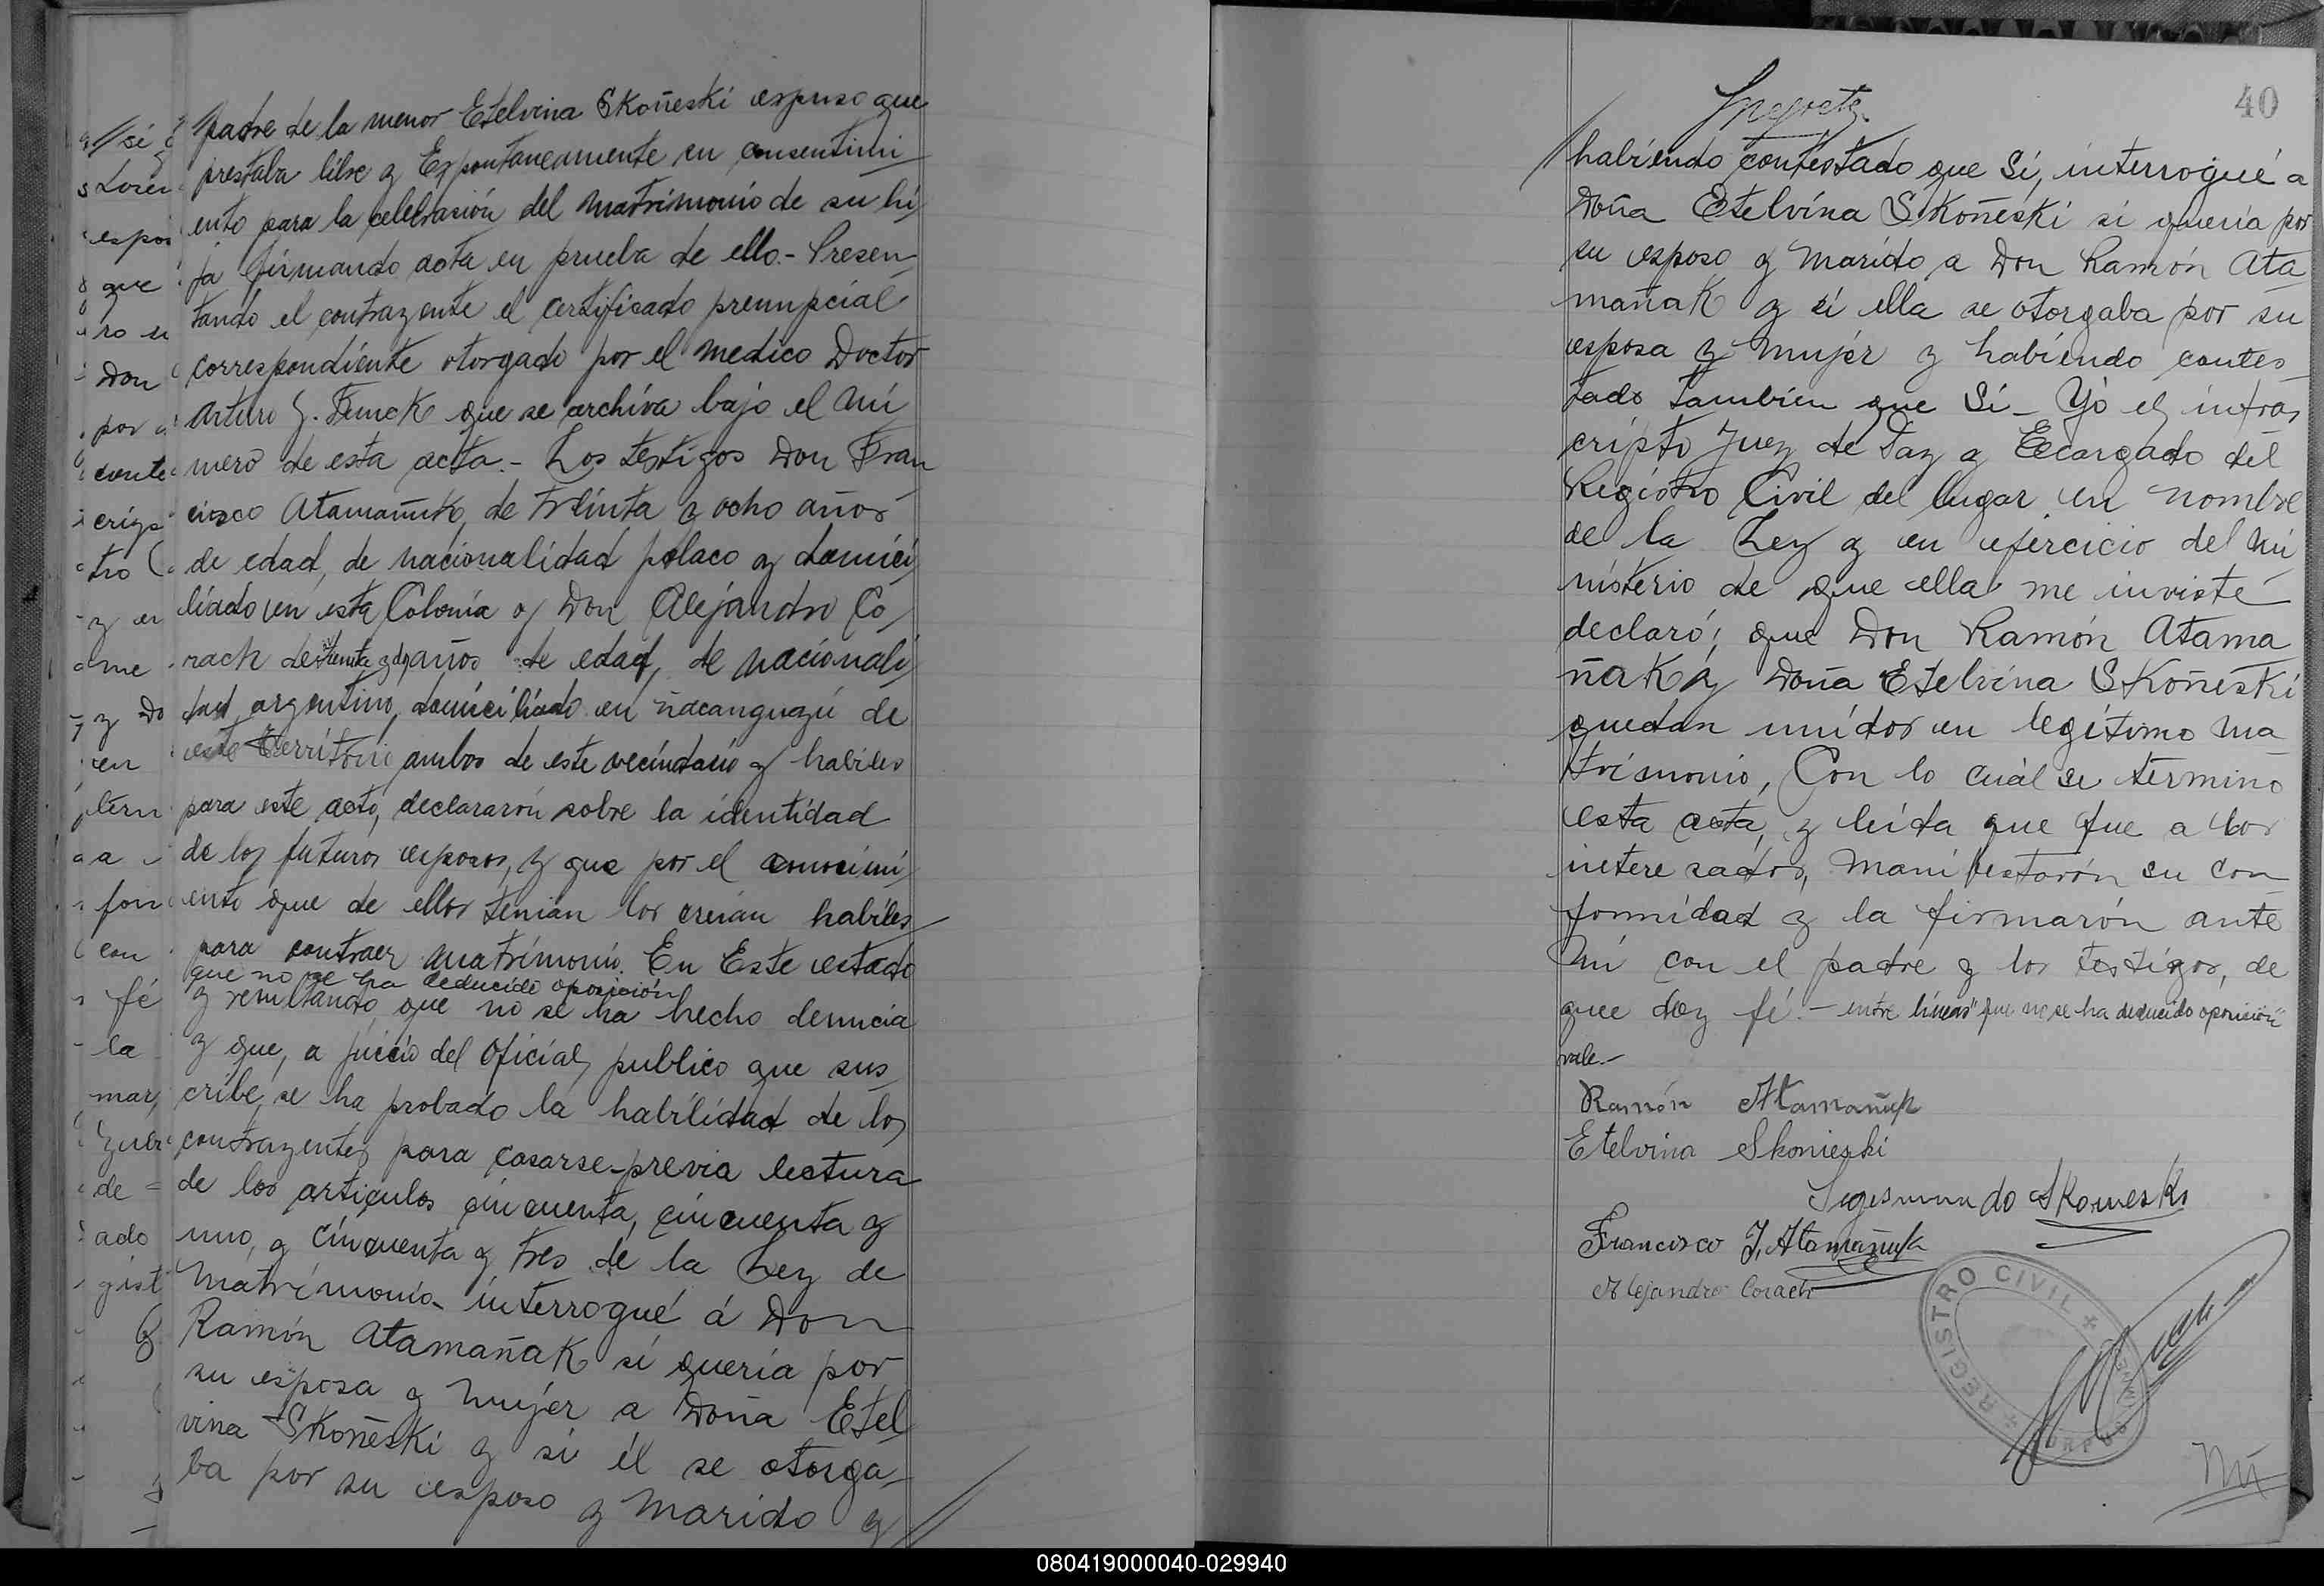 padre de la menor Etelvina Skoñeski espuso que
prestaba libre y Expontaneamente su consentimi
ento para la celebrasión del matrimonio de su hi
ja firmando acta en prueba de ello.- Presen
tando el contrayente el certificado prenupcial
correspondiente otorgado por el medico Doctor
Arturo que se archiva bajo el nú
mero de esta acta.- Los testigos Don Fran
cisco Atamañuk, de treinta y ocho años
de edad, de nacionalidad polaco y domici
liado en esta Colonia y Don Alejandro Co
rach de treinta y dos años de edad, de nacionali
dad argentino, domiciliado en ñacanguazú de
este Territorio ambos de este vecindario y habiles
para este acto, declararón sobre la identidad
de los futuros esposos, y que por el conocimi
ento que de ellos tenian los creian habiles
para contraer matrimonio. En Este estado
que no se ha deducido oposición
y resultando que no se ha hecho denuncia
y que, a juicio del Oficial publico que sus
cribe, se ha probado la habilidad de los
contrayentes para casarse-previa lectura
de los articulos cincuenta, cincuenta y
uno, y cincuenta y tres de la Ley de
Matrimonio- interrogué á Don
Ramón Atamañak si queria por
su esposa y mujer a Doña Etel
vina Skoñeski y si él se otorga
ba por su esposo y marido y
si
Loren
espos
que
ro
Don
por
conte
tro
me
y Do
en
a
fon
con
fé
la
mar,
de
ado
gist
40
habiendo contestado que Si, interrogué a
Doña Etelvina Skoñeski si queria por
su esposo y marido a Don Ramón Ata
mañak y si ella se otorgaba por su
esposa y mujer y habiendo contes
tado tambien que Si- Yo el infras
cripto Juez de Paz y Ecargado del
Registro Civil del lugar en nombre
de la Ley y en ejercicio del mi
nisterio de que ella me inviste
declaró; que Don Ramón Atama
ñak y Doña Etelvina Skoñeski
quedan unidos en legitimo ma
trimonio, Con lo cuál se termino
esta acta, y leida que fue a los
interesados, manifestarón su con
formidad y la firmarón ante
mi con el padre y los testigos, de
que doy fé.- entre lineas "que no se ha deducido oposición"
vale.-
Ramón Atamañuk
Etelvina Skonieski
Segismundo Skonieski
Francisco J. Atamañuk
Alejandro Corach
REGISTRO CIVIL
080419000040-029940